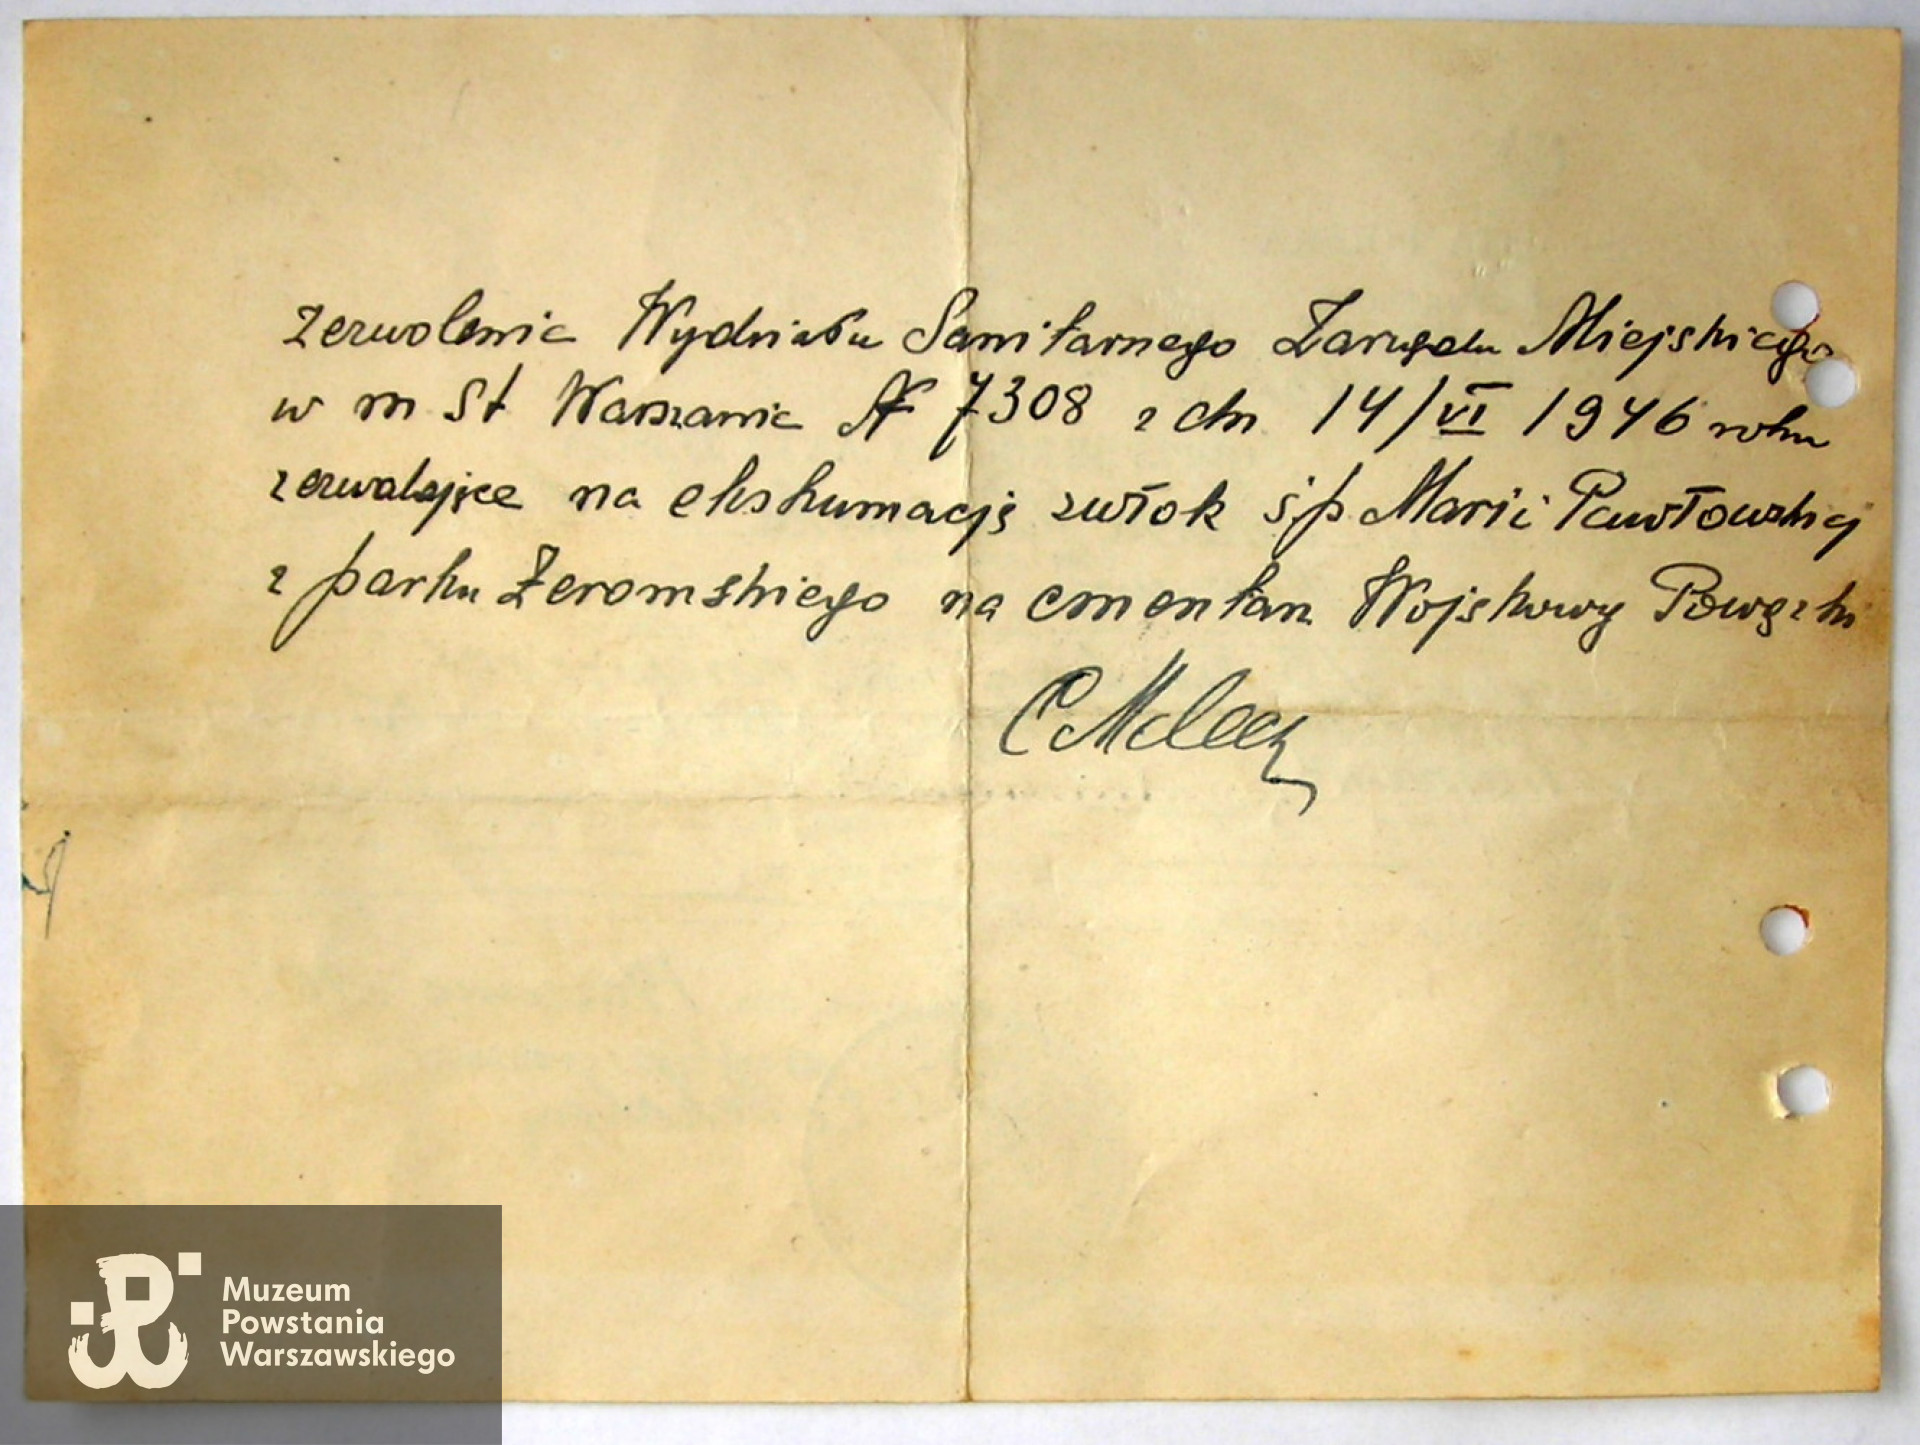 Zezwolenie Wydziału Sanitarnego Zarządu Miejskiego
w m St Warszawie N 7308 z dn 14/VI 1946 roku
zezwalające na ekshumację zwłok ś.p Marii Pawłowskiej
z parku Żeromskiego na cmentarz Wojskowy Powązki
Muzeum
Powstania
Warszawskiego